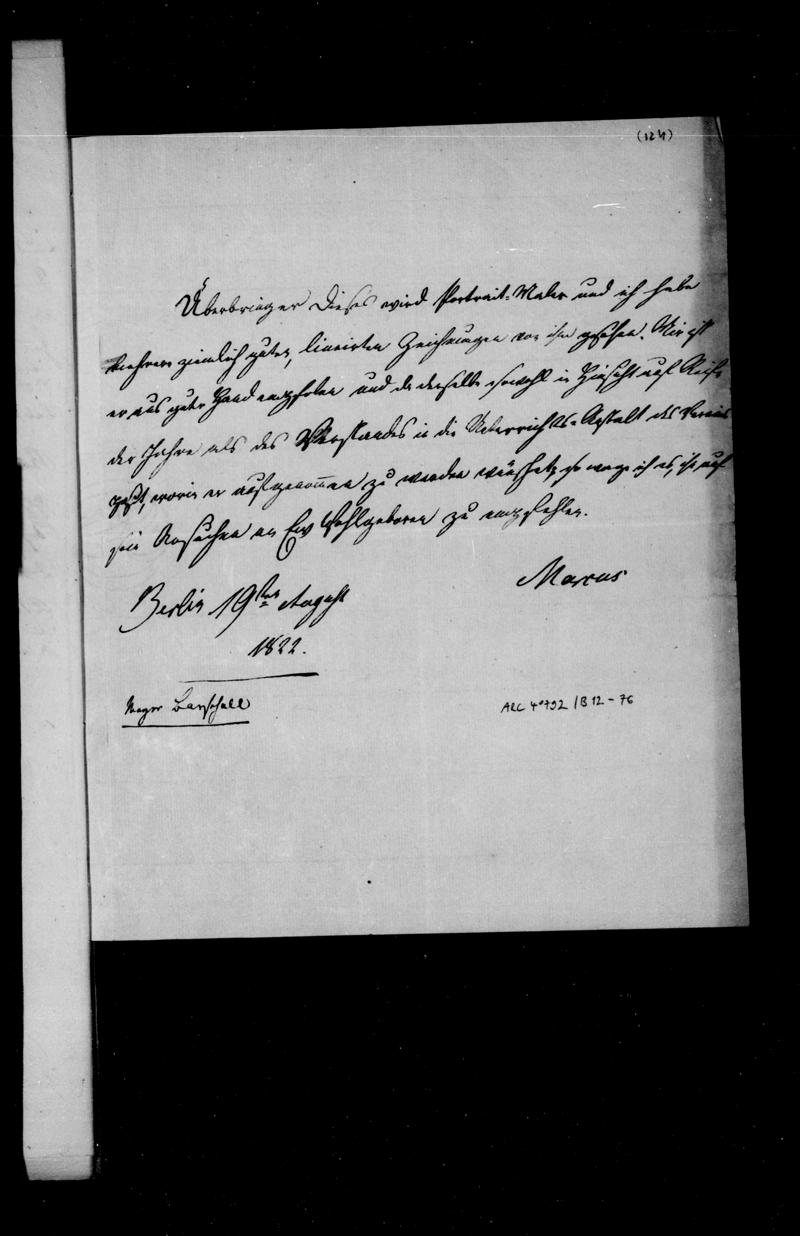 (124)
Überbringer Dieses wird Portrait-Maler und ich habe
mehrere ziemlich gute, linirten Zeichnungen von ihm gesehen. Mir ist
er aus guter Hand empfohlen und da derselbe sowohl in Hinsicht auf Reife
der Jahre als des Verstandes in die Unterrichts-Anstalt des Vereins
paßt, worin er aufgenommen zu werden wünscht, so wage ich es, ihn auf
sein Ansuchen an Ew Wohlgeboren zu empfehlen.
Marcus
Berlin 19ten August
1822.
Meyer Barschall
ARC 4°792 /B 12-76